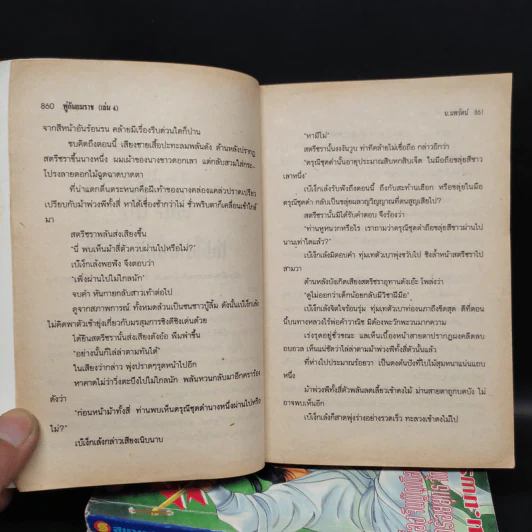 860 พู่กันยมราช (เล่ม 4)
จากสีหน้าอันร้อนรน คล้ายมีเรื่องรีบด่วนใดก็ปาน
ชบคิดถึงตอนนี้ เสียงชายเสื้อปะทะลมพลันดัง ด้านหลังปรากฏ
สตรีชราขึ้นนางหนึ่ง ผมเผ้าของนางขาวดอกเลา แต่กลับสวมใส่
โปร่งลายดอกไม้ฉูดฉาดบาดตา
ที่น่าแตกตื่นตระหนกคือฝีเท้าของนางคล่องแคล่วปราดเปรียว
เปรียบกับม้าพ่วงพีทั้งสี่ หาได้เชื่องช้ากว่าไม่ ชั่วพริบตาก็เคลื่อนเข้าใกล้
มา
สตรีชราพลันส่งเสียงขึ้น
"นี่ พบเห็นม้าสี่ตัวควบผ่านไปหรือไม่?"
เป้เจ็กเล้งพอฟัง จึงตอบว่า
"เพิ่งผ่านไปไม่ไกลนัก"
จบคำ หันกายกลับสาวเท้าต่อไป
ดูจากสภาพการณ์ ทั้งหมดล้วนเป็นชนชาวบู๊ลิ้ม ดังนั้นเป้เจ็กเล้ง
ไม่คิดพาตัวเข้ายุ่งเกี่ยวกับมรสุมการชิงดีชิงเด่นด้วย
ได้ยินสตรีชรานั้นส่งเสียงดังอ้อ พึมพำขึ้น
"อย่างนั้นก็ไล่ล่าตามทันได้"
ในเสียงว่ากล่าว พุ่งปราดๆรุดหน้าไปอีก
หาคาดไม่ว่าวิ่งตะบึงไปไม่ไกลนัก พลันหวนกลับมาอีกคราร้อง
ดังว่า
"ก่อนหน้าม้าทั้งสี่ ท่านพบเห็นดรุณีชุดดำนางหนึ่งผ่านไปหรือ
ไม่?"
เป้เจ็กเล้งกล่าวเสียงเนิบนาบ
น.นพรัตน์ 861
"หามีไม่"
สตรีชรานั้นงงงันวูบ ท่าทีคล้ายไม่เชื่อถือ กล่าวอีกว่า
"ดรุณีชุดดำนั้นอายุประมาณสิบหกสิบเจ็ด ในมือถือขลุ่ยสีขาว
เลาหนึ่ง"
เป้เจ็กเล้งรับฟังถึงตอนนี้ ถึงกับสะท้านเฮือก หรือขลุ่ยในมือถือ
ดรุณีชุดดำ กลับเป็นขลุ่ยผลาญวิญญาณที่ตนสูญเสียไป?
สตรีชรานั้นมิได้รับคำตอบ จึงร้องว่า
"ท่านหูหนวกหรือไร เราถามว่าดรุณีชุดดำถือขลุ่ยสีขาวผ่านไป
นานเท่าใดแล้ว?"
เป้เจ็กเล้งมิตอบคำ ทุ่มเทตัวเบาพุ่งขวับไป ชิงล้ำหน้าสตรีชราไป
สามวา
ด้านหลังบังเกิดเสียงสตรีชราอุทานดังเอ๊ะ โพล่งว่า
"ดูไม่ออกว่าเด็กน้อยกลับมีวิชาฝีมือ"
เป้เจ็กเล้งจิตใจร้อนรุ่ม ทุ่มเทตัวเบาท่องนภาถึงขีดสุด ดีที่ตอน
นี้บนทางหลวงไร้พ่อค้าวาณิช มิต้องพะวักพะวนมากความ
เร่งรุดอยู่ชั่วขณะ แลเห็นเบื้องหน้าสายตาปรากฏผงคลีตลบ
อบอวล เห็นแน่ชัดว่าไล่ล่าตามม้าพ่วงพีทั้งสี่ตัวนั้นแล้ว
ที่ห่างไปประมาณร้อยวา เป็นดงต้นปังที่ใบไม้สุมหนาแน่นแถบ
หนึ่ง
ม้าพ่วงพีทั้งสี่ตัวพลันลดเลี้ยวเข้าดงไม้ ม่านสายตาถูกบดบัง ไม่
อาจพบเห็นอีก
เป้เจ็กเล้งก็สาดพุ่งร่างอย่างรวดเร็ว ทะลวงเข้าดงไม้ไป